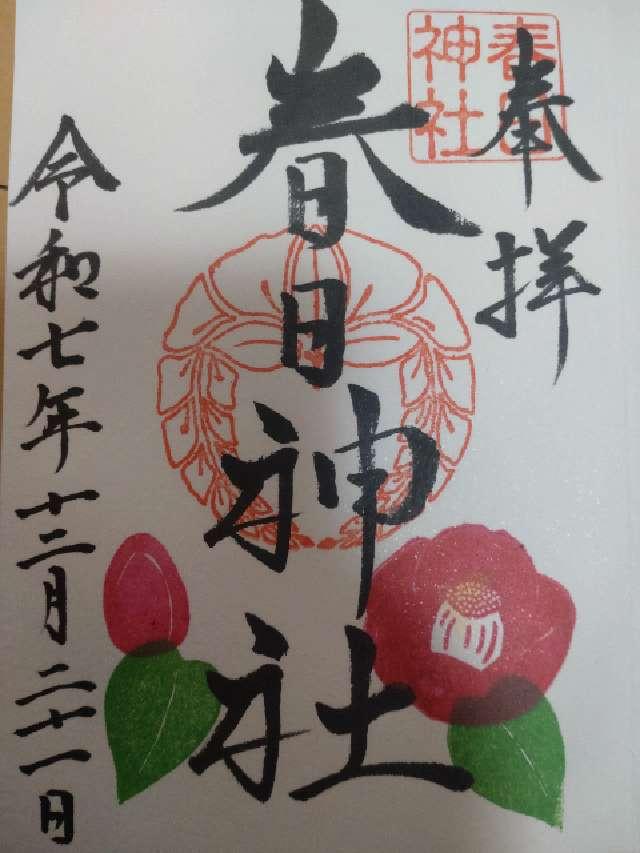 奉拝
春日神社
春日神社
令和七年十二月二十一日